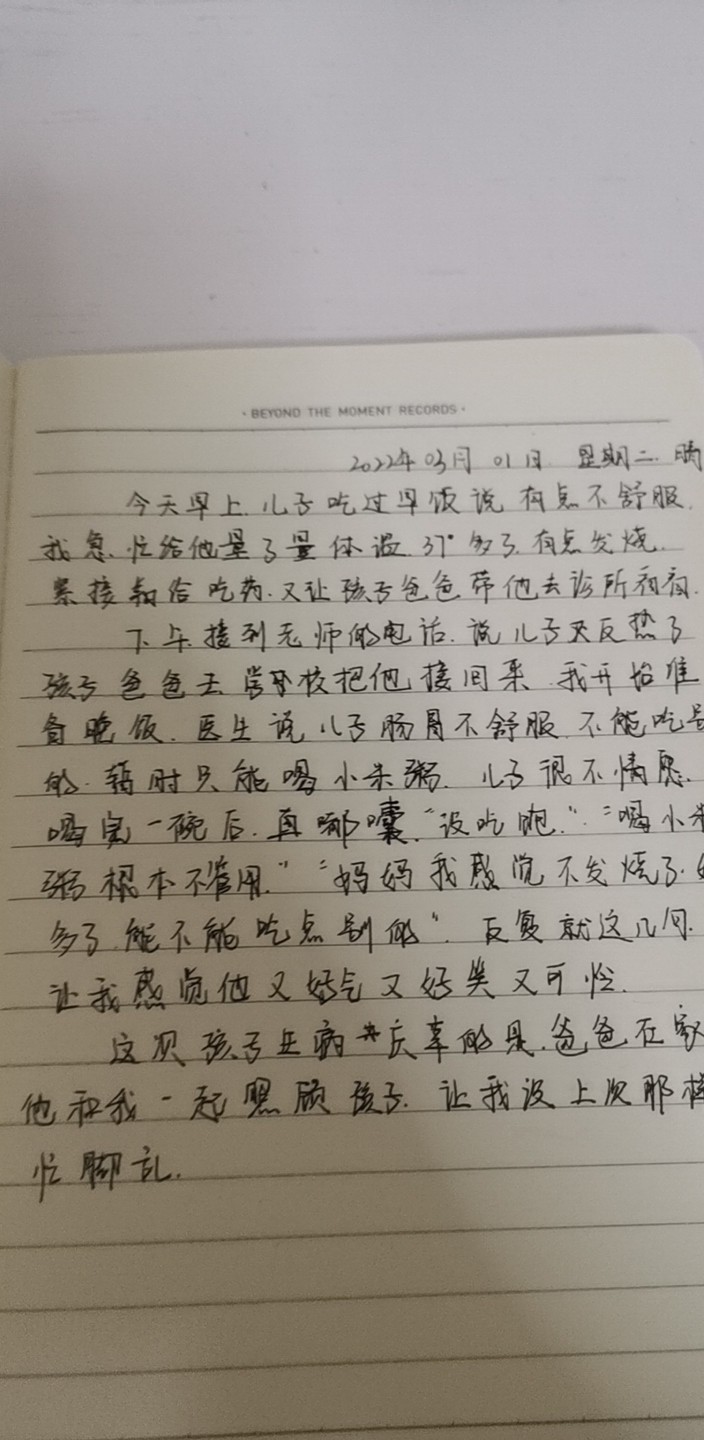 · BEYOND THE MOMENT RECORDS ·
2022年03月01日 星期二 晴
今天早上.儿子吃过早饭说有点不舒服.
我急忙给他量了量体温.37°多了.有点发烧.
紧接着给吃药.又让孩子爸爸带他去诊所看看.
下午接到老师的电话.说儿子又反热了
孩子爸爸去学校把他接回来.我开始准
备晚饭.医生说儿子肠胃不舒服.不能吃别
的.暂时只能喝小米粥.儿子很不情愿.
喝完一碗后.直嘟囔.“没吃饱.”.“喝小米
粥根本不管用.”“妈妈我感觉不发烧了.
多了.能不能吃点别的”.反复就这几句.
让我感觉他又好气又好笑又可怜.
这次孩子生病庆幸的是.爸爸在家
他和我一起照顾孩子.让我没上次那样
忙脚乱.